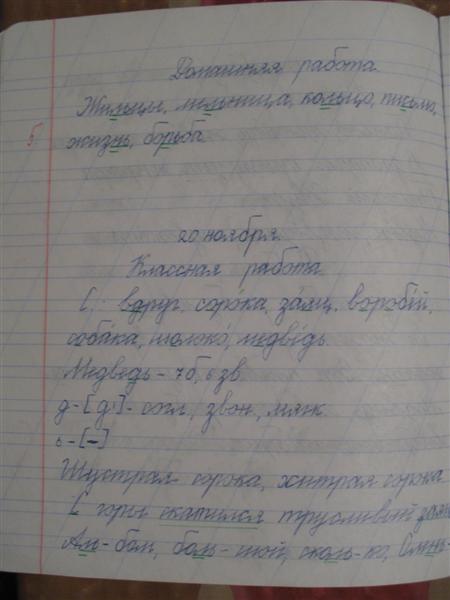 Домашняя работа.
Жильцы, мельница, кольцо, письмо,
5
жизнь, борьба.
20 ноября.
Классная работа.
С, : вдруг, соро́ка, за́яц, воробе́й,
соба́ка, молоко́, медве́дь.
Медведь - 7 б, 6 зв.
д - [д'] - согл., звон., мягк.
ь - [-]
Шустрая сорока, хитрая сорока
С горы скатился трусливый заяц
Аль-бом, боль-шой, сколь-ко, Олень-